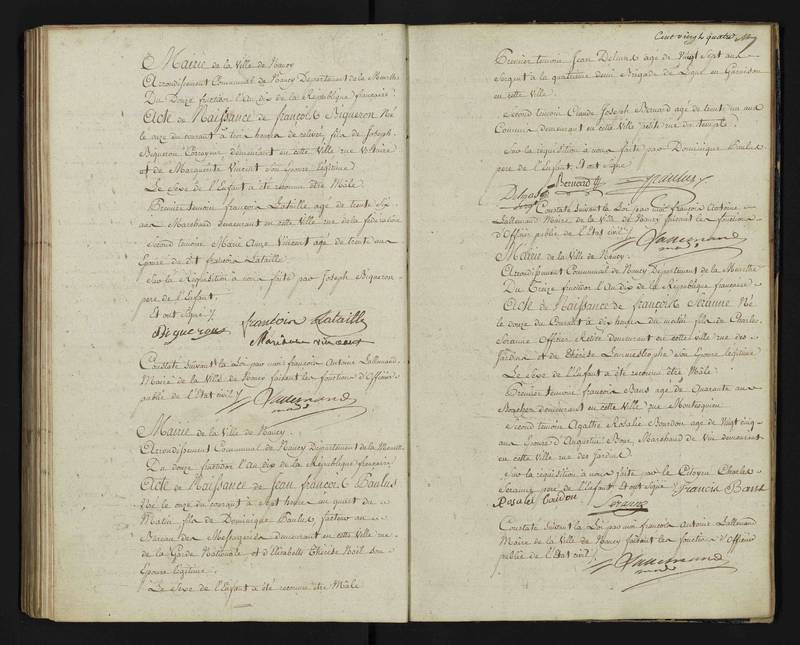 Mairie de la Ville de Nancy
Arrondissement Communal de Nancy Departement de la Meurthe
Du Douze fructidor l'An dix de la République française.
Acte de Naissance de françois Bigueron Né
le onze du courant à trois heures de relevée, fils de Joseph
Bigueron Corroyeur demeurant en cette Ville rue Voltaire
et de Marguerite Vincent son Epouse légitime
Le Sexe de l'Enfant a été reconnu être Mâle.
Premier temoin françois Lataille agé de trente Six
ans Marchand demeurant en cette Ville rue de la fédération
Second temoin Marie Anne Vincent agé de trente ans
Epouse du dt. françois Lataille
Sur la Réquisition à nous faite par Joseph Bigueron
pere de l'Enfant.
Et ont Signé
Bigueron françois Lataille
Marianne vincent
Constaté Suivant la Loi par moi françois Antoine Lallemand
Maire de la Ville de Nancy faisant les fonctions d'Officier
public de l'Etat civil
Lallemand
Mairie de la Ville de Nancy.
Arrondissement Communal de Nancy Departement de la Meurthe
Du douze fructidor l'An dix de la République française
Acte de Naissance de Jean françois Paulus
Né le onze du courant à Sept heures un quart du
Matin, fils de Dominique Paulus, facteur au
Bureau des Messageries demeurant en cette Ville rue
de la Garde Nationale et d'Elisabeth Thérèse Noël Son
Epouse légitime.
Le Sexe de l'Enfant a été reconnu être Mâle
Cent vingt quatre
Premier temoin Jean agé de Vingt Sept ans
Sergent à la quatrieme demi Brigade de Ligne en Garnison
en cette Ville.
Second temoin Claude Joseph Bernard agé de trente un ans
Commis demeurant en cette Ville petite rue du temple.
Sur la réquisition à nous faite par Dominique Paulus
pere de l'Enfant. Et ont Signé
Bernard Paulus
Constaté Suivant la Loi par moi françois Antoine
Lallemand Maire de la Ville de Nancy faisant les fonctions
d'Officier public de l'Etat civil
Lallemand
Mairie de la Ville de Nancy.
Arrondissement Communal de Nancy Departement de la Meurthe
Du Treize fructidor l'An dix de la République française
Acte de Naissance de françois Seranne Né
le douze du Courant à dix heures du matin fils de Charles
Seranne Officier Retiré demeurant en cette ville rue des
Jardins et de Thérèse Son Epouse légitime
Le Sexe de l'Enfant a été reconnu être Mâle.
Premier temoin françois Bans agé de Quarante ans
demeurant en cette Ville rue Montesquieu
Second temoin Agathe Rosalie Bourdon agé de Vingt cinq
ans Epouse d'Augustin Marchand de Vin demeurant
en cette Ville rue des Jardins.
Sur la réquisition à nous faite par le Citoyen Charles
Seranne pere de l'Enfant. Et ont Signé Francis Bans
Rosalie Seranne
Constaté Suivant la Loi par moi françois Antoine Lallemand
Maire de la Ville de Nancy faisant les fonctions d'Officier
public de l'Etat civil
Lallemand